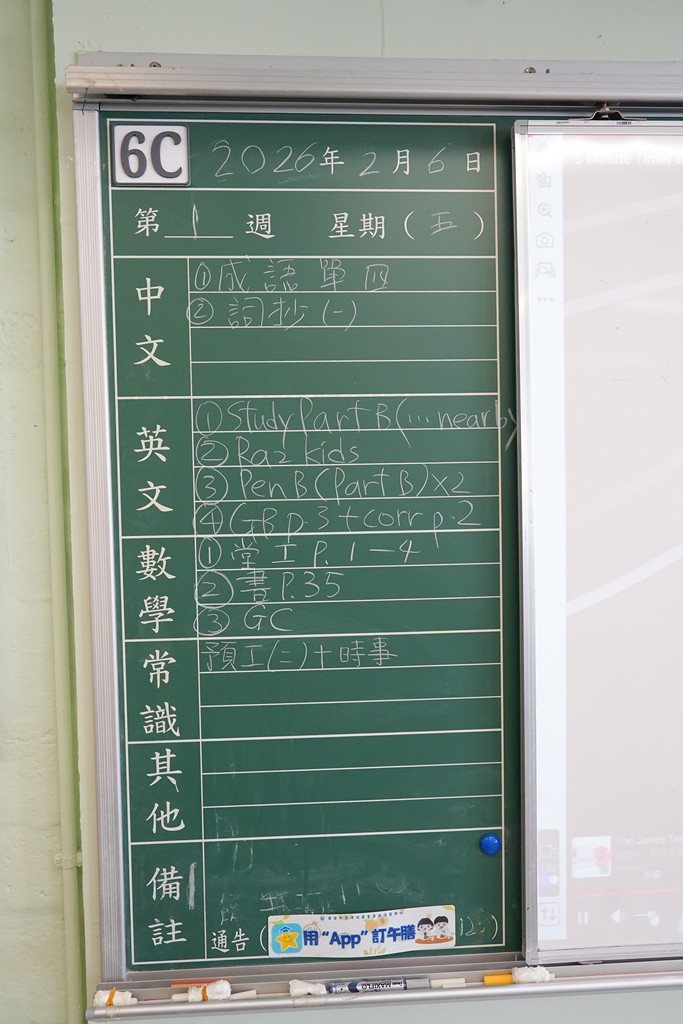 6C 2026年2月6日
第 1 週 星期（五）
中文
①成語單四
②詞抄(一)
英文
①Study Part B (...nearby)
②Raz kids
③Pen B (Part B) x2
④GB p.3 + corr p.2
數學
①堂工P.1—4
②書P.35
③GC
常識
預工(二)+時事
其他
備註
通告(
用“App”訂午膳
5 Minute Timer
The James
MAXIFLO